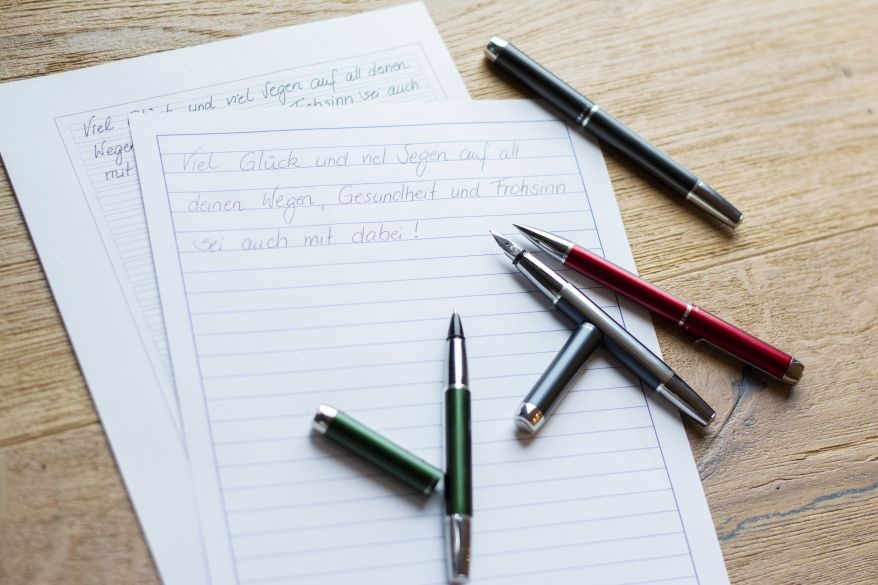 Viel Glück und viel Segen auf all deinen
Frohsinn sei auch
mit
Viel Glück und viel Segen auf all
deinen Wegen, Gesundheit und Frohsinn
sei auch mit dabei!